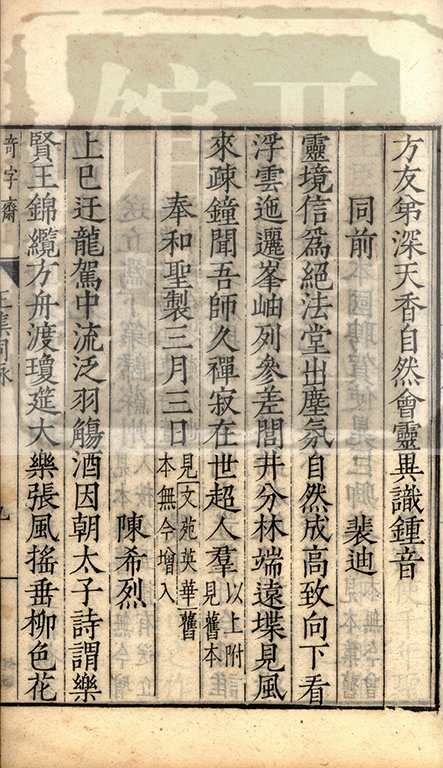 方友弟深天香自然會靈異識鍾音
同前 裴迪
靈境信為絕法堂出塵氛自然成高致向下看
浮雲迤邐峯岫列參差閭井分林端遠堞見風
來疎鐘聞吾師久禪寂在世超人羣以上附見舊本
奉和聖製三月三日見文苑英華舊本無今增入
陳希烈
上巳迂龍駕中流泛羽觴酒因朝太子詩謂樂
賢王錦纜方舟渡瓊筵大樂張風搖垂柳色花
奇字齋
王集同詠
九